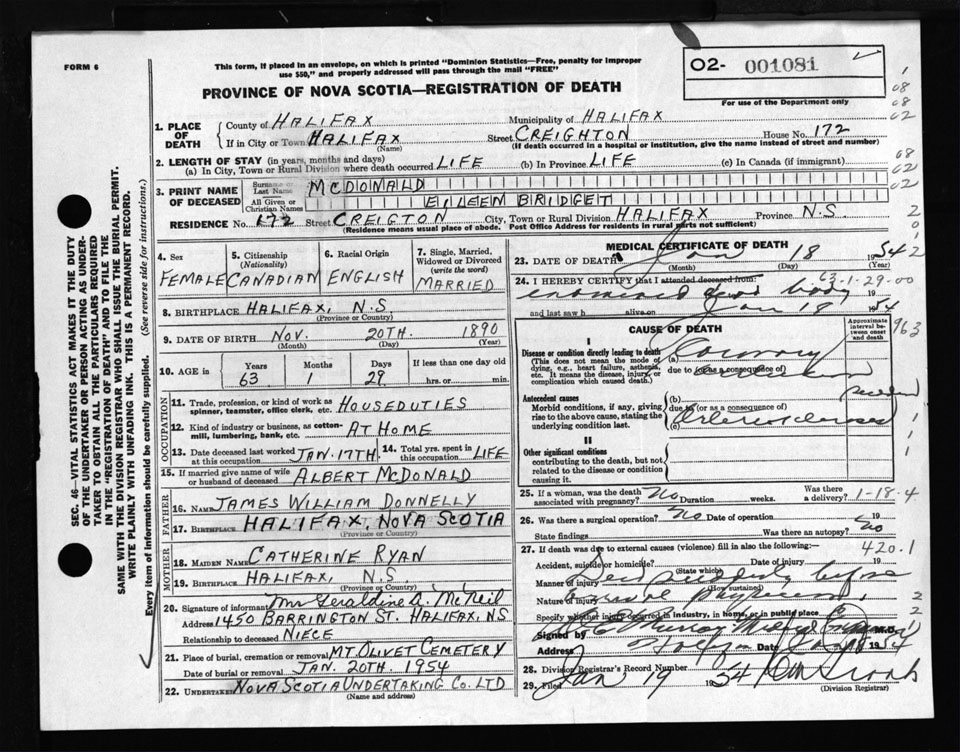 FORM 6
This form, if placed in an envelope, on which is printed "Dominion Statistics—Free, penalty for improper
use $50," and properly addressed will pass through the mail "FREE"
O2- 001081
For use of the Department only
PROVINCE OF NOVA SCOTIA—REGISTRATION OF DEATH
1. PLACE OF DEATH
County of HALIFAX Municipality of HALIFAX
If in City or Town HALIFAX (Name) Street CREIGHTON House No. 172
(If death occurred in a hospital or institution, give the name instead of street and number)
2. LENGTH OF STAY (in years, months and days)
(a) In City, Town or Rural Division where death occurred LIFE (b) In Province LIFE (c) In Canada (if immigrant)
3. PRINT NAME OF DECEASED
Surname or Last Name MCDONALD
All Given or Christian Names EILEEN BRIDGET
RESIDENCE No. 172 Street CREIGTON City, Town or Rural Division HALIFAX Province N.S.
(Residence means usual place of abode. Post Office Address for residents in rural parts not sufficient)
4. Sex FEMALE
5. Citizenship (Nationality) CANADIAN
6. Racial Origin ENGLISH
7. Single, Married, Widowed or Divorced (write the word) MARRIED
8. BIRTHPLACE HALIFAX, N.S.
(Province or Country)
9. DATE OF BIRTH NOV. 20TH. 1890
(Month) (Day) (Year)
10. AGE in Years 63 Months 1 Days 29 If less than one day old hrs. or min.
OCCUPATION
11. Trade, profession, or kind of work as spinner, teamster, office clerk, etc. HOUSEDUTIES
12. Kind of industry or business, as cotton-mill, lumbering, bank, etc. AT HOME
13. Date deceased last worked at this occupation JAN. 17TH. 14. Total yrs. spent in this occupation LIFE
15. If married give name of wife or husband of deceased ALBERT MCDONALD
FATHER
16. Name JAMES WILLIAM DONNELLY
17. Birthplace HALIFAX, NOVA SCOTIA
(Province or Country)
MOTHER
18. Maiden Name CATHERINE RYAN
19. Birthplace HALIFAX, N.S.
(Province or Country)
20. Signature of informant Mrs Geraldine A. McNeil
Address 1450 BARRINGTON ST. HALIFAX, N.S
Relationship to deceased NIECE
21. Place of burial, cremation or removal MT OLIVET CEMETERY
Date of burial or removal JAN. 20TH. 1954
22. Undertaker NOVA SCOTIA UNDERTAKING CO. LTD
(Name and address)
MEDICAL CERTIFICATE OF DEATH
23. DATE OF DEATH Jan 18 1954
(Month) (Day) (Year)
24. I HEREBY CERTIFY that I attended deceased from:
63-1-29-00
examined dead body 19
and last saw h alive on Jan 18 1954
CAUSE OF DEATH
Approximate interval between onset and death
963
I
Disease or condition directly leading to death
(This does not mean the mode of dying, e.g., heart failure, asthenia, etc. It means the disease, injury, or complication which caused death.)
(a) Coronary
due to (or as a consequence of)
occlusion
Antecedent causes
Morbid conditions, if any, giving rise to the above cause, stating the underlying condition last.
(b)
due to (or as a consequence of)
(c) Arteriosclerosis
II
Other significant conditions
contributing to the death, but not related to the disease or condition causing it.
25. If a woman, was the death associated with pregnancy? No Duration weeks. Was there a delivery? 1-18-4
26. Was there a surgical operation? No Date of operation 19
State findings Was there an autopsy? No
27. If death was due to external causes (violence) fill in also the following:— 420.1
Accident, suicide or homicide? Date of injury 19
(State which)
Manner of injury died suddenly before
(How sustained)
Nature of injury arrival physician.
Specify whether injury occurred in industry, in home, or in public place
Signed by M.D.
Address Halifax Date Jan 1954
28. Division Registrar's Record Number
29. Filed Jan 19 1954
(Division Registrar)
SEC. 46—VITAL STATISTICS ACT MAKES IT THE DUTY
OF THE UNDERTAKER OR PERSON ACTING AS UNDER-
TAKER TO OBTAIN ALL THE PARTICULARS REQUIRED
IN THE "REGISTRATION OF DEATH" AND TO FILE THE
SAME WITH THE DIVISION REGISTRAR WHO SHALL ISSUE THE BURIAL PERMIT.
WRITE PLAINLY WITH UNFADING INK. THIS IS A PERMANENT RECORD.
Every item of information should be carefully supplied. (See reverse side for instructions.)